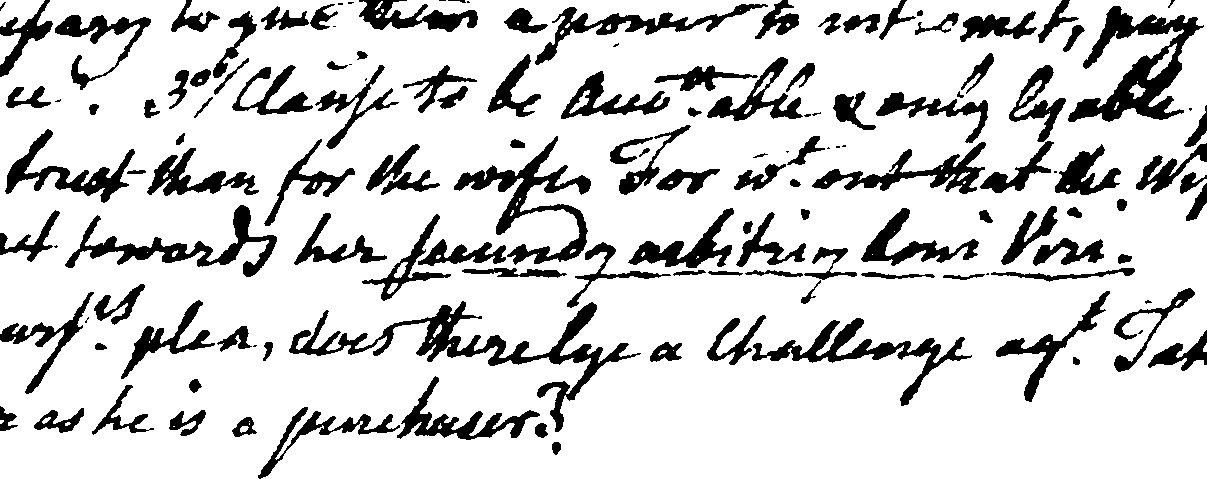 to give them a power to intromet, pay
ce". 3°/ Clause to be Ans:able & only lyable
trust than for the wife. For wt. ent that the Wif
towards her secundum arbitrium boni Viri.
plea, does there lye a Challenge agt. Tat
as he is a purchaser?